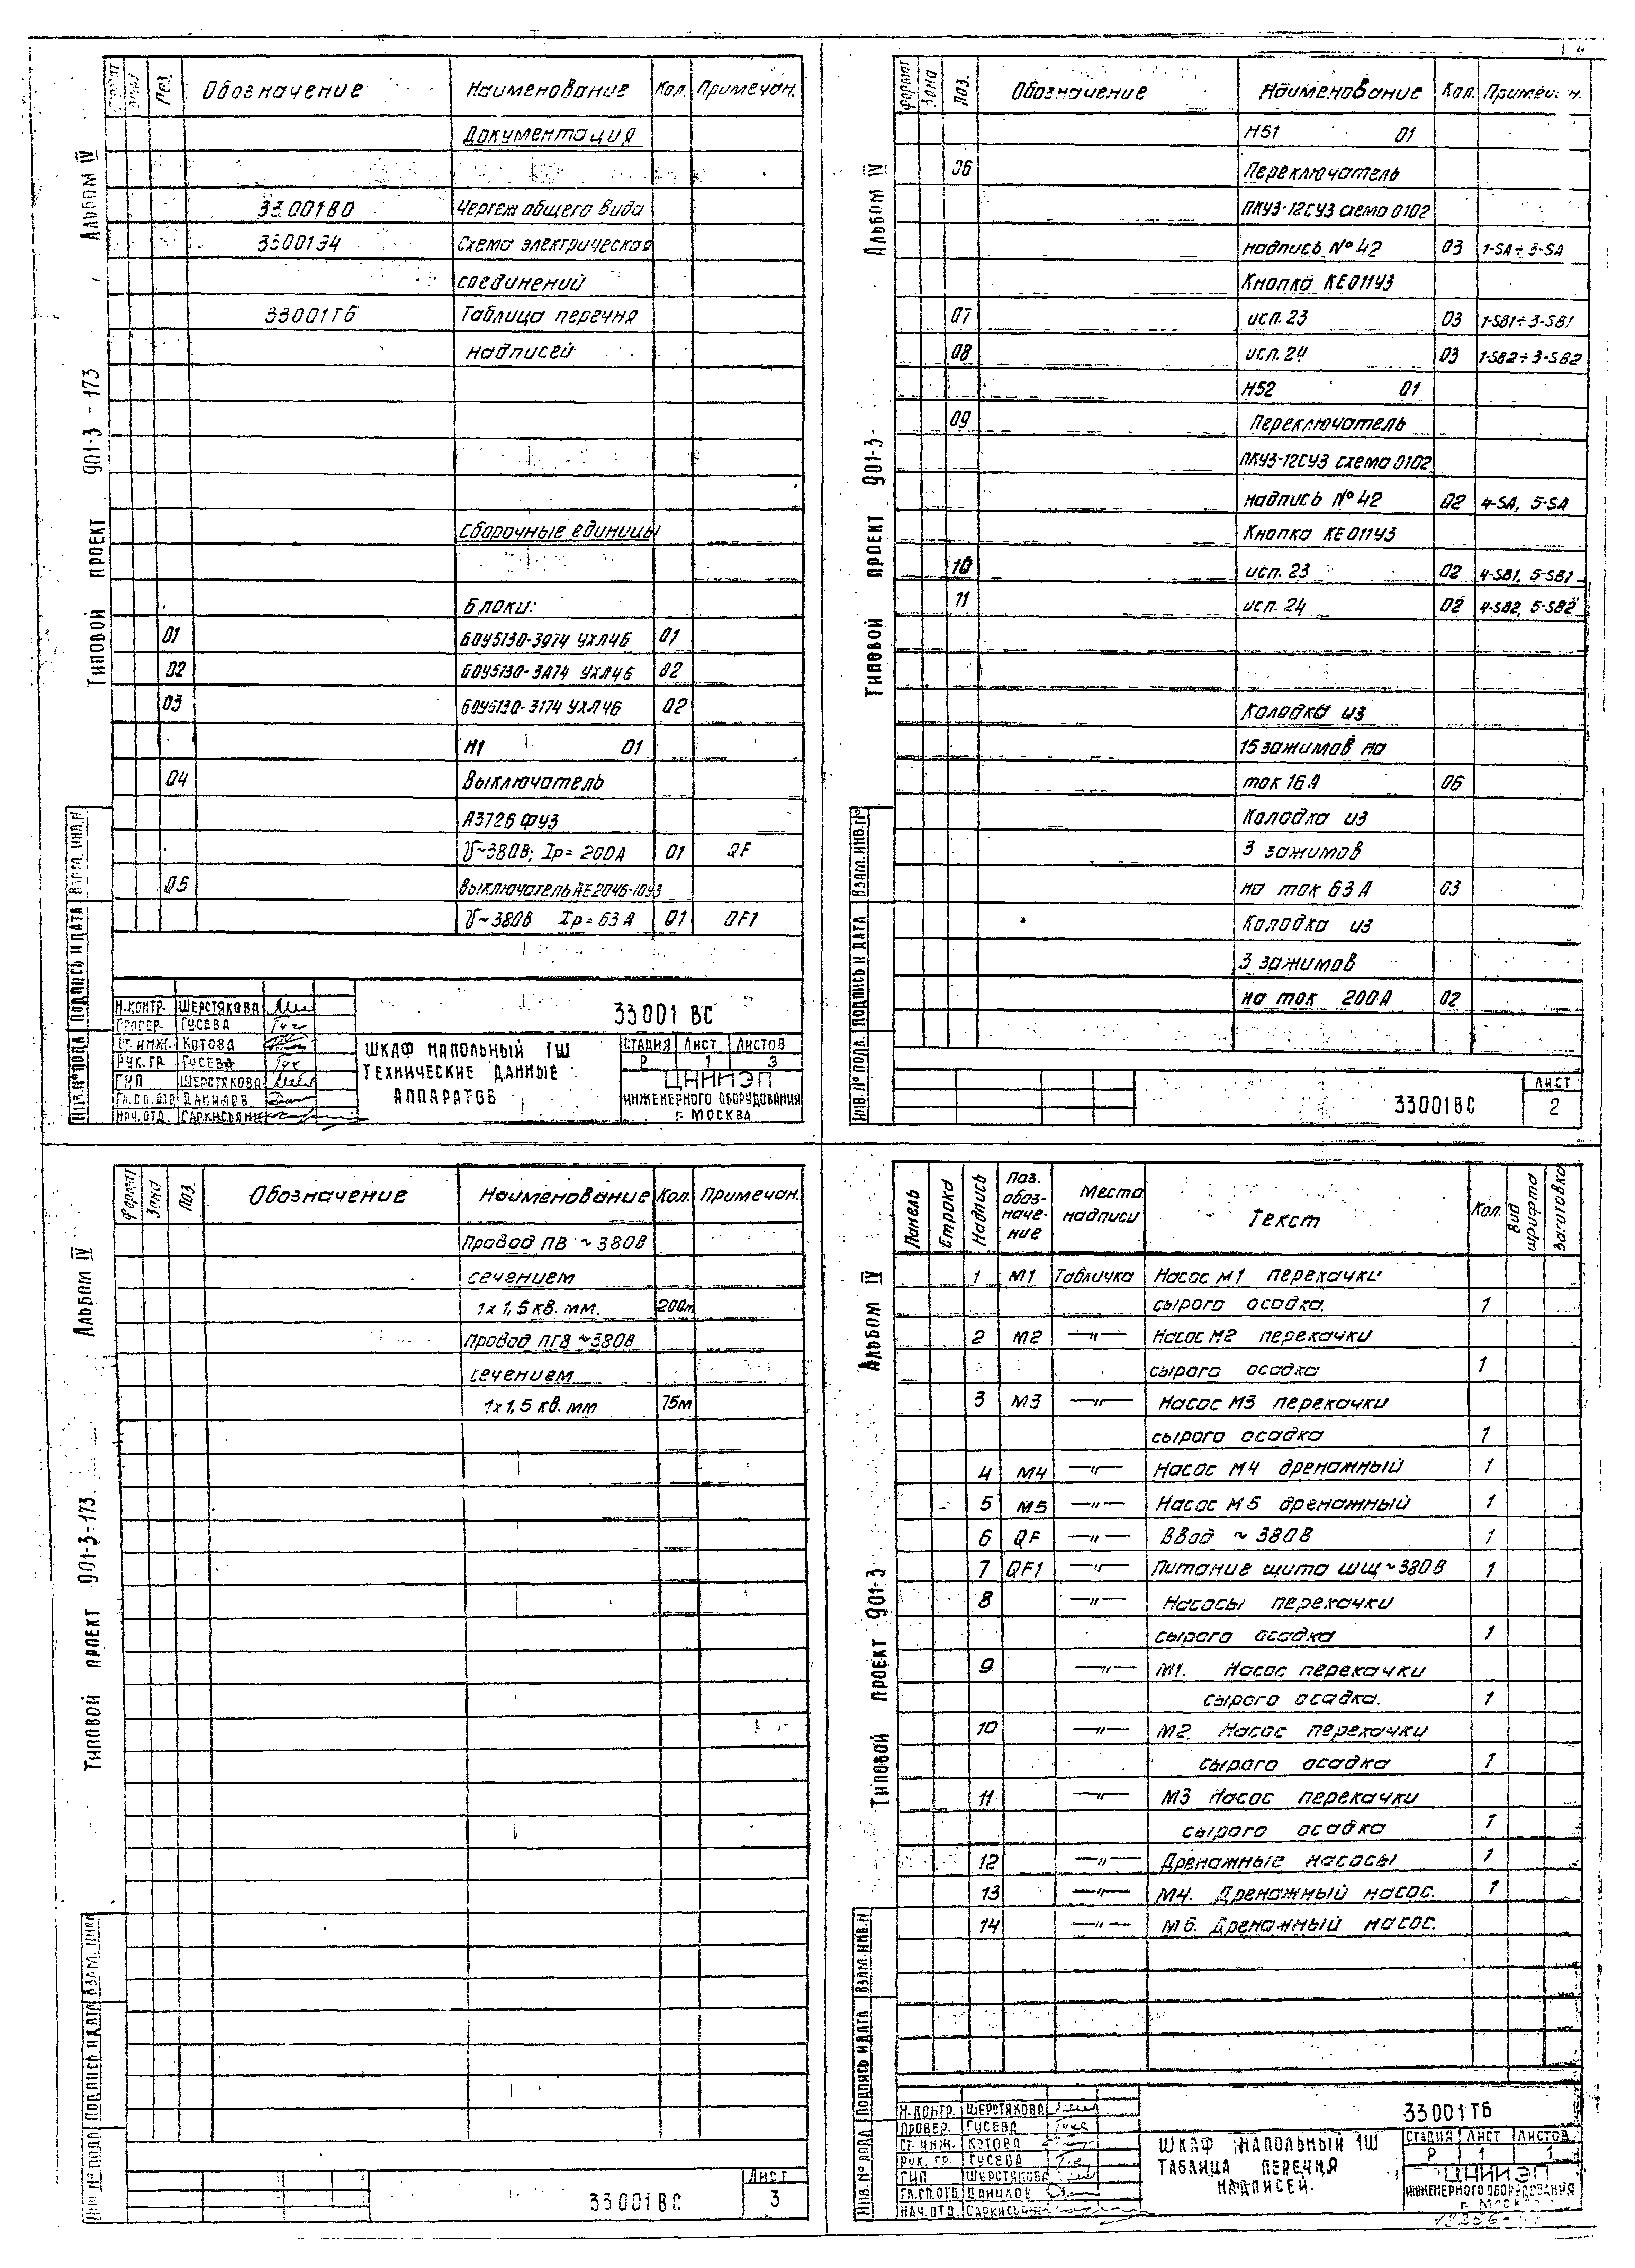 4
Альбом IV
Типовой проект 901-3-173
Формат Зона Поз. Обозначение Наименование Кол. Примечан.
Документация
33001ВО Чертеж общего вида
33001Э4 Схема электрическая
соединений
33001ТБ Таблица перечня
надписей
Сборочные единицы
Блоки:
01 БОУ5130-3974 УХЛ4Б 01
02 БОУ5130-3А74 УХЛ4Б 02
03 БОУ5130-3174 УХЛ4Б 02
Н1 01
04 Выключатель
А3726ФУ3
U~380В; Iр=200А 01 QF
05 Выключатель АЕ2046-10У3
U~380В Iр=63А 01 QF1
Инв.№ подл Подпись и дата Взам. инв.№
Н.контр. Шерстякова
Провер. Гусева
Ст. инж. Котова
Рук. гр. Гусева
ГИП Шерстякова
Гл.сп.отд Данилов
Нач.отд. Саркисьян
33001 ВС
Шкаф напольный 1Ш
Технические данные
аппаратов
Стадия Лист Листов
Р 1 3
ЦНИИЭП
инженерного оборудования
г. Москва
Альбом IV
Типовой проект 901-3-
Формат Зона Поз. Обозначение Наименование Кол. Примечан.
Н51 01
06 Переключатель
ПКУ3-12СУ3 схема 0102
надпись №42 03 1-SA÷3-SA
Кнопка КЕ011У3
07 исп. 23 03 1-SB1÷3-SB1
08 исп. 24 03 1-SB2÷3-SB2
Н52 01
09 Переключатель
ПКУ3-12СУ3 схема 0102
надпись №42 02 4-SA, 5-SA
Кнопка КЕ011У3
10 исп. 23 02 4-SB1, 5-SB1
11 исп. 24 02 4-SB2, 5-SB2
Колодка из
15 зажимов на
ток 16А 06
Колодка из
3 зажимов
на ток 63А 03
Колодка из
3 зажимов
на ток 200А 02
Инв.№ подл. Подпись и дата Взам.инв.№
33001ВС
Лист
2
Альбом IV
Типовой проект 901-3-173
Формат Зона Поз. Обозначение Наименование Кол. Примечан.
Провод ПВ ~380В
сечением
1х1,5 кв. мм. 200м
Провод ПГВ ~380В
сечением
1х1,5 кв. мм 75м
Инв №подл Подпись и дата Взам. инв№
33001ВС
Лист
3
Альбом IV
Типовой проект 901-3
Панель Строка Надпись Поз. обоз-наче-ние Место надписи Текст Кол. Вид шрифта Заготовка
1 М1 Табличка Насос М1 перекачки
сырого осадка. 1
2 М2 —"— Насос М2 перекачки
сырого осадка 1
3 М3 —"— Насос М3 перекачки
сырого осадка 1
4 М4 —"— Насос М4 дренажный 1
5 М5 —"— Насос М5 дренажный 1
6 QF —"— Ввод ~380В 1
7 QF1 —"— Питание щита ШЩ~380В 1
8 —"— Насосы перекачки
сырого осадка 1
9 —"— М1. Насос перекачки
сырого осадка. 1
10 —"— М2. Насос перекачки
сырого осадка 1
11 —"— М3 Насос перекачки
сырого осадка 1
12 —"— Дренажные насосы 1
13 —"— М4. Дренажный насос. 1
14 —"— М5. Дренажный насос.
Инв.№ подл Подпись и дата Взам.инв.№
Н.контр. Шерстякова
Провер. Гусева
Ст. инж. Котова
Рук. гр. Гусева
ГИП Шерстякова
Гл.сп.отд Данилов
Нач.отд. Саркисьян
33001ТБ
Шкаф напольный 1Ш
Таблица перечня
надписей.
Стадия Лист Листов
Р 1 1
ЦНИИЭП
инженерного оборудования
г. Москва